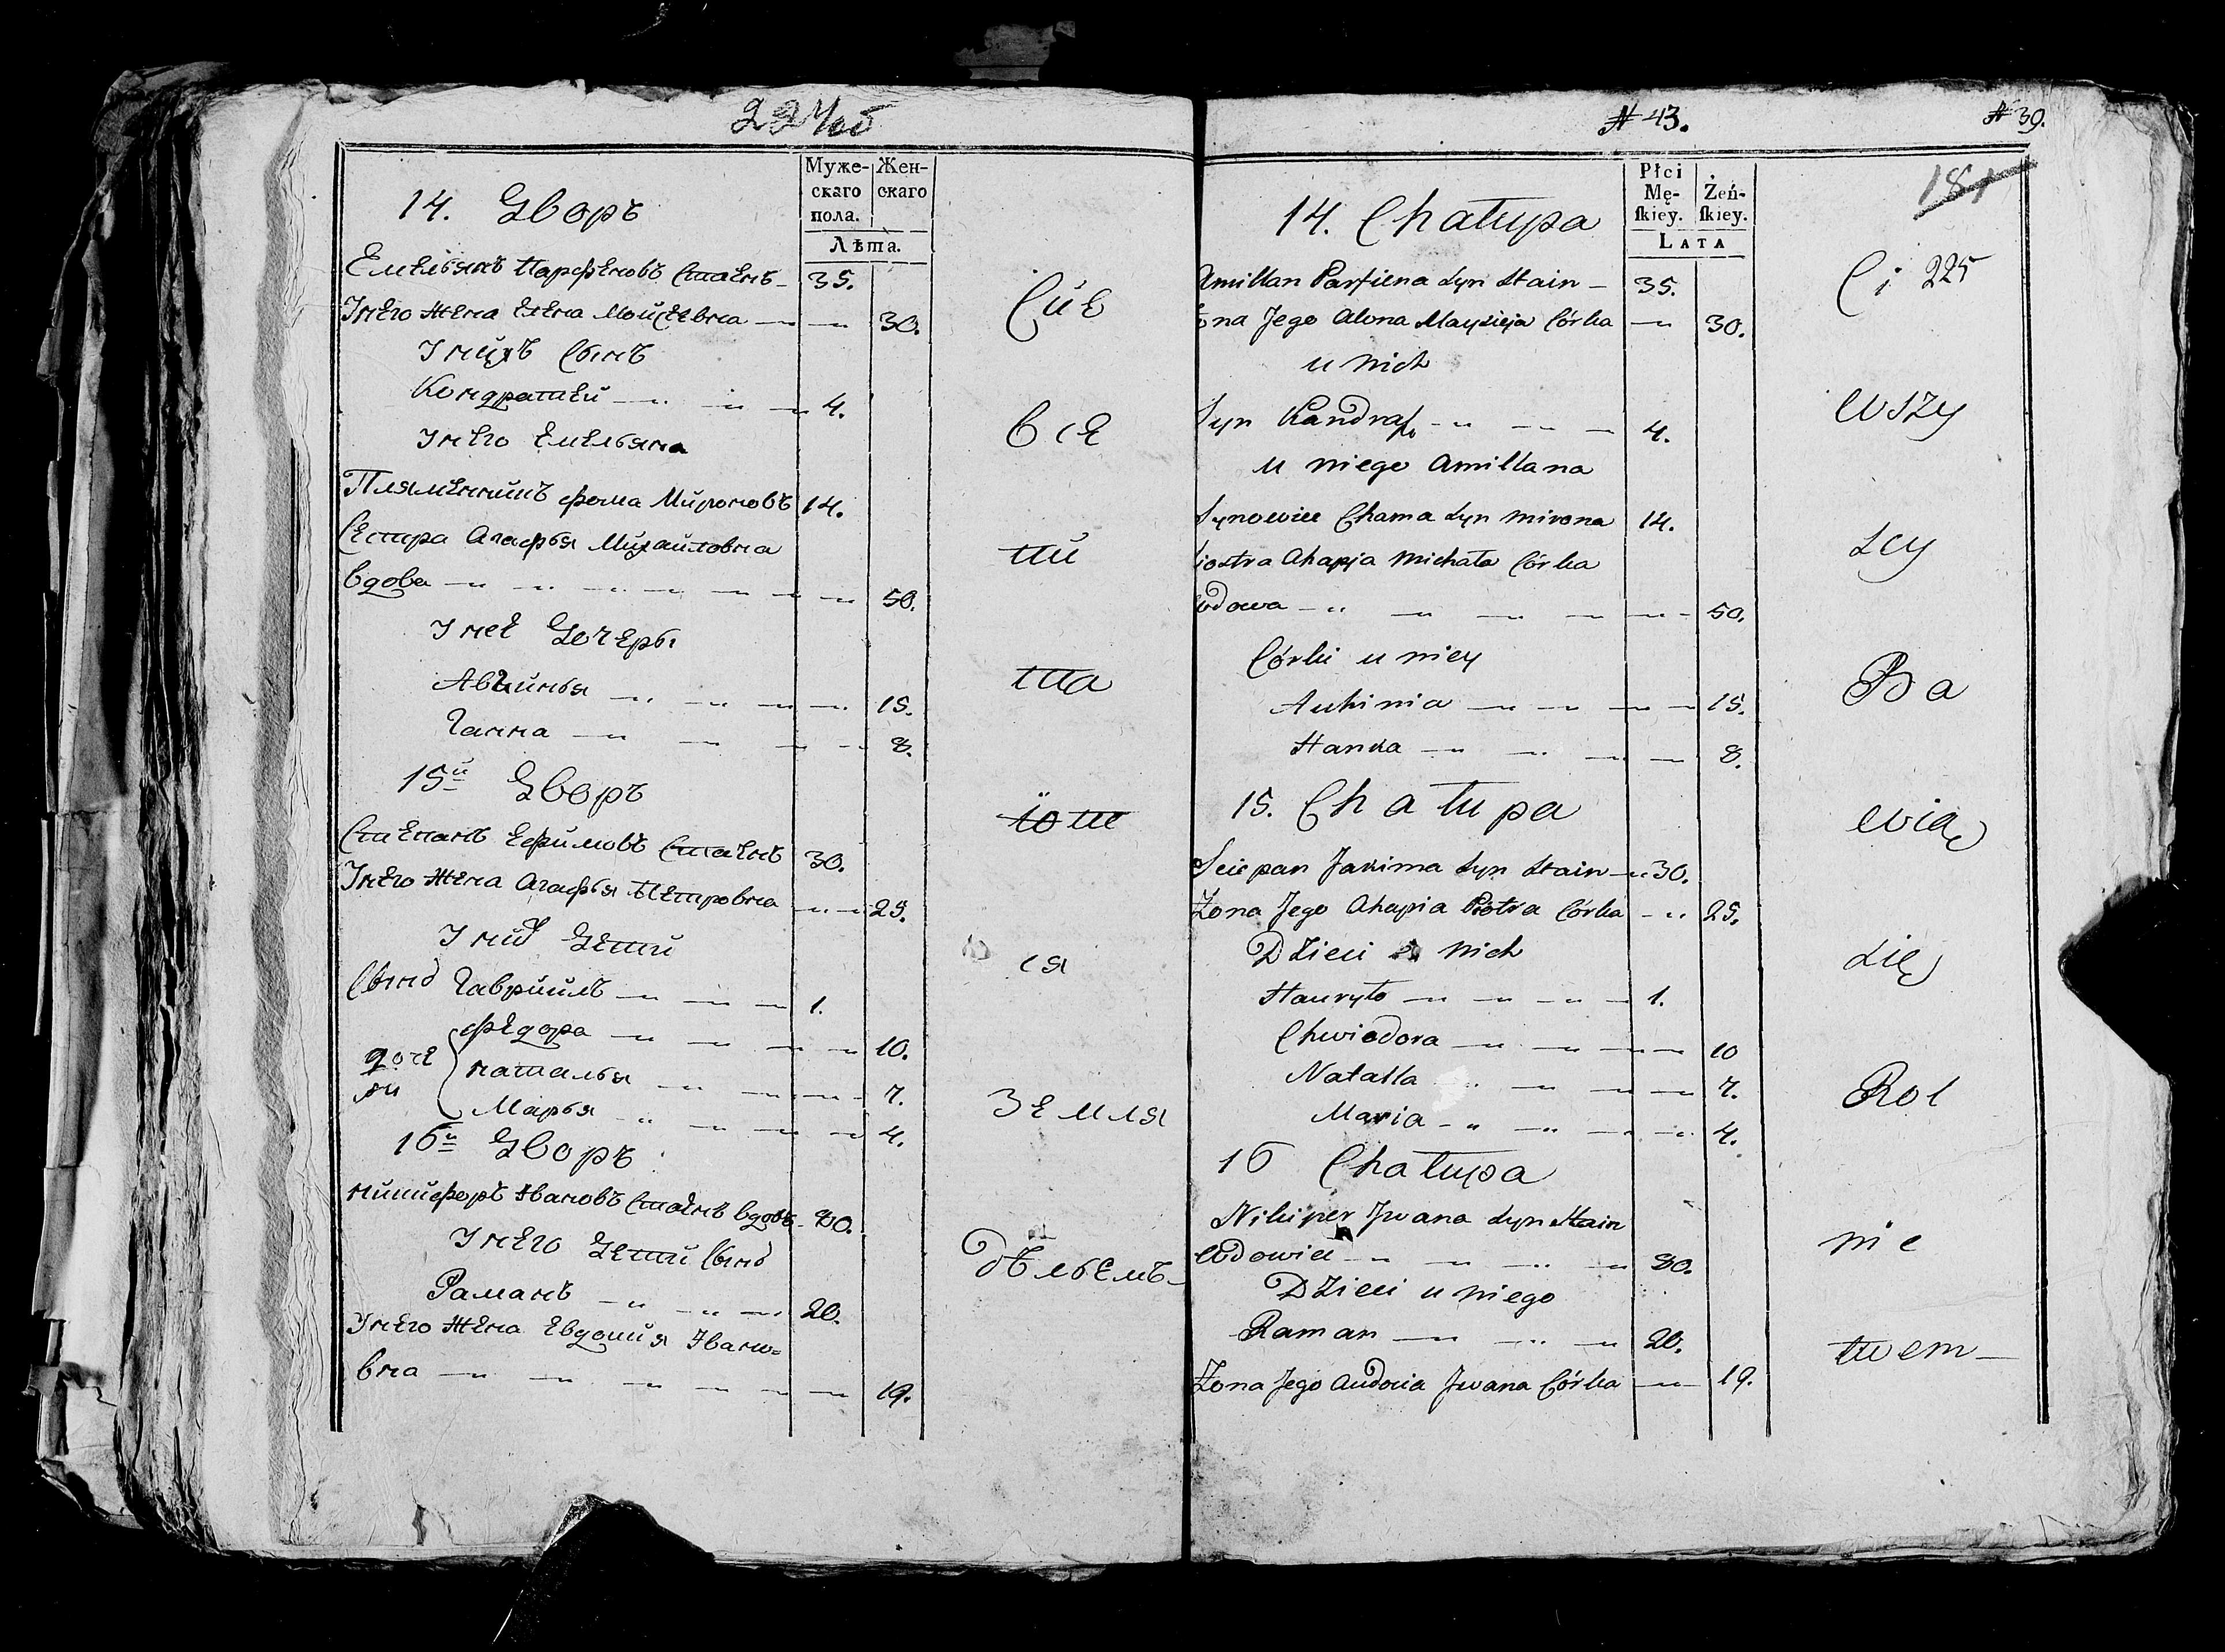 224 об
Муже- Жен-
скаго скаго
пола.
Лѣта.
14. Дворъ
Емельянъ Парфеновъ Стаенъ 35.
Унего жена Елена Мойсеевна 30.
Унихъ Сынъ
Кондратей 4.
Унего Емельяна
Племенникъ Фома Мироновъ 14.
Сестра Агафья Михайловна
вдова 50.
Унее Дочеры
Авгинья 15.
Ганна 8.
15й Дворъ
Степанъ Ефимовъ Стаенъ 30.
Унего жена Агафья Петровна 25.
Уних Дети
Сынъ Гавриилъ 1.
доче
ри
Федора 10.
Наталья 7.
Марья 4.
16й Дворъ
Никифоръ Ивановъ Стаенъ вдовъ 80.
Унего Дети Сынъ
Раманъ 20.
Унего жена Евдокия Ивано-
вна 19.
Сии
все
ти
та
ют
ся
земля
дѣльемъ
№ 43. № 39.
181
225
Płci
Mę- Żeń-
skiey. skiey.
LATA
14. Chałupa
Amillan Parfiena Syn Stain 35.
żona Jego Alona Maysieja Córka 30.
u nich
Syn Kandrat 4.
u niego Amillana
Synowiec Chama Syn Mirona 14.
Siostra Ahapja Michała Córka
wdowa 50.
Córki u niey
Auhinia 15.
Hanna 8.
15. Chałupa
Sciepan Jakima Syn Stain 30.
Żona Jego Ahapia Piotra Córka 25.
Dzieci u nich
Hauryło 1.
Chwiedora 10
Natalla 7.
Maria 4.
16 Chałupa
Nikiper Jwana Syn Stain
wdowiec 80.
Dzieci u niego
Raman 20.
Żona Jego Audocia Jwana Córka 19.
Ci
wszy
scy
Ba
wią
się
Rol
nic
twem